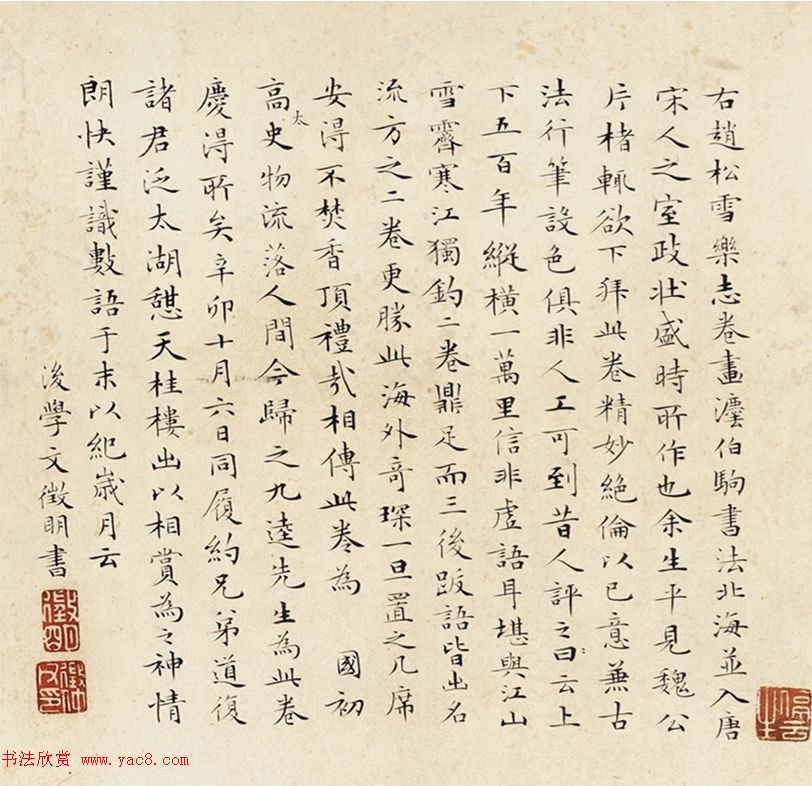 右趙松雪樂志卷畫灋伯駒書法北海並入唐
宋人之室政壯盛時所作也余生平見魏公
片楮輒欲下拜此卷精妙絕倫以己意兼古
法行筆設色俱非人工可到昔人評之曰云上
下五百年縱橫一萬里信非虛語耳堪與江山
雪霽寒江獨釣二卷鼎足而三後跋語皆出名
流方之二卷更勝此海外奇琛一旦置之几席
安得不焚香頂禮哉相傳此卷為 國初
高太史物流落人間今歸之九逵先生為此卷
慶得所矣辛卯十月六日同履約兄弟道復
諸君泛太湖憩天桂樓出以相賞為之神情
朗快謹識數語于末以紀歲月云
後學文徵明書
徵明
書法欣赏 www.yac8.com